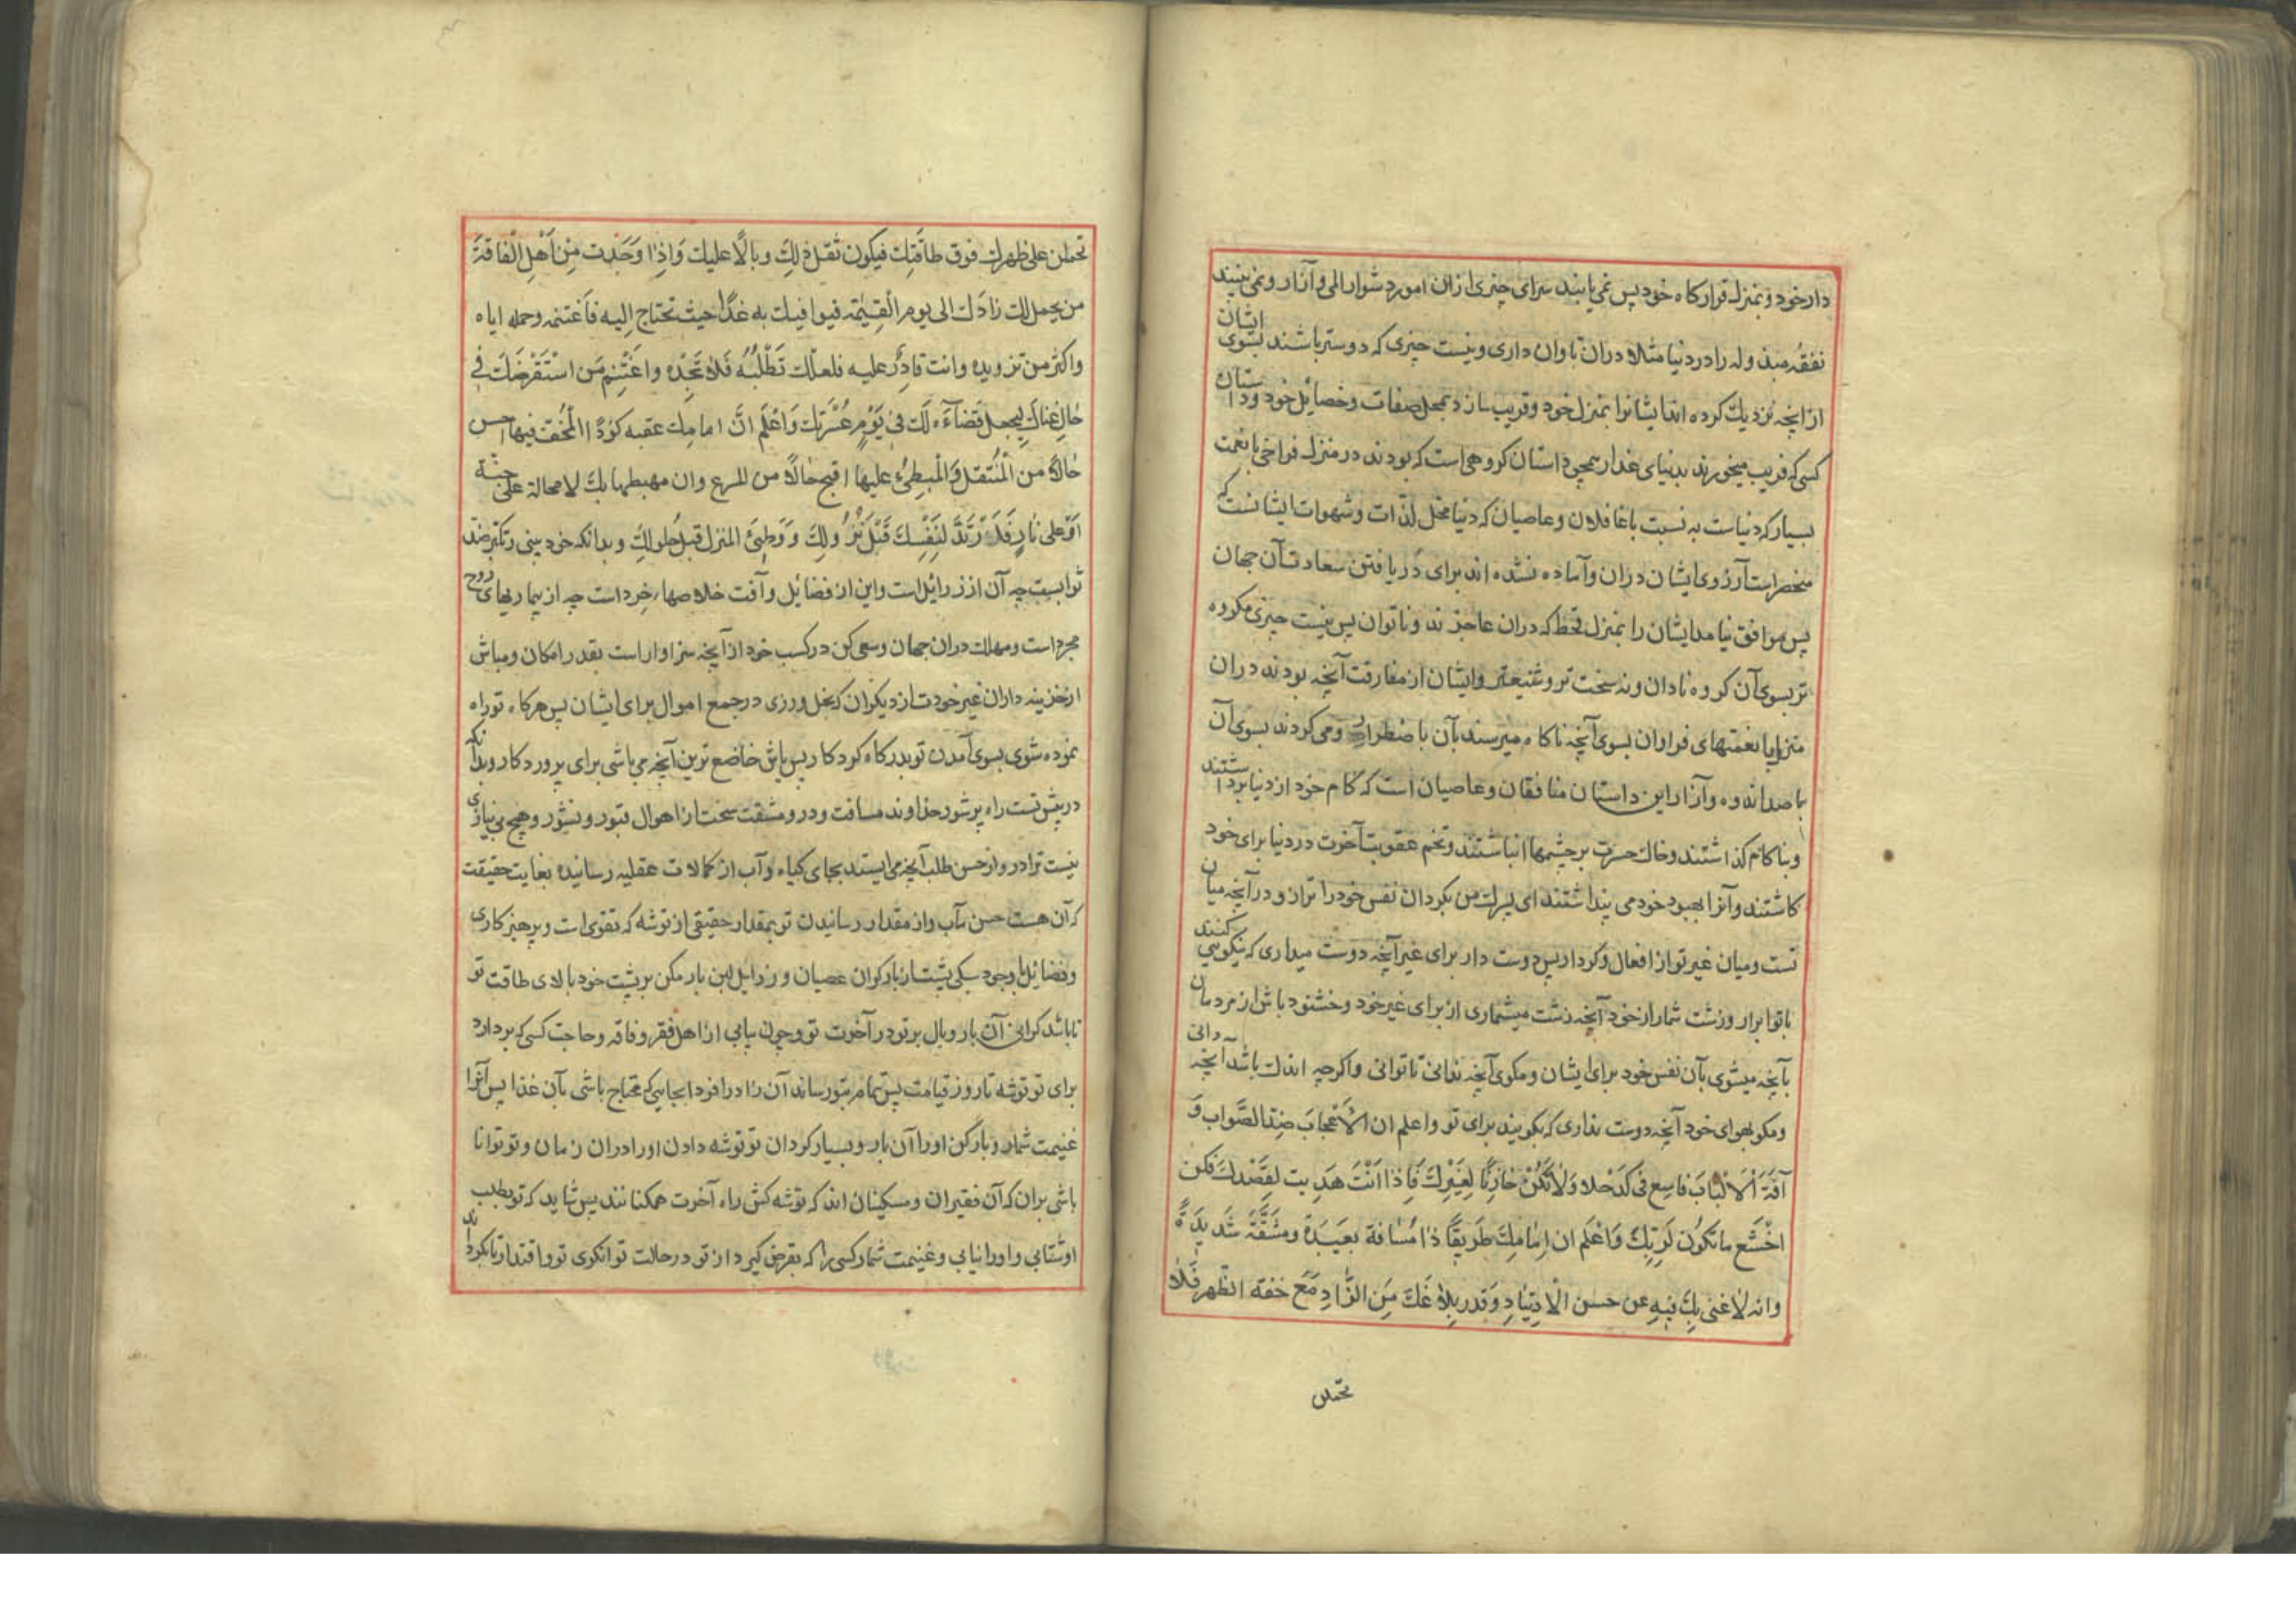 دار خود و بمنزله قرار کاه خود پس نمی یابند سرای چیزی از ان امور دشوار المی و آزار و نمی بینند
نفقه مبذوله را در دنیا مثلا در ان تاوان داری و نیست چیزی که دوستر باشند بسوی ایشان
از انچه نزدیک کرده اند ایشانرا بمنزل خود و قریب سازد بمحل صفات و خصائل خود و داستان
کسی که فریب میخورند بدنیای غدار همچو داستان کروهی است که بودند در منزل فراخی با نعمت
بسیار که دنیاست به نسبت با غافلان و عاصیان که دنیا محل لذّات و شهوات ایشانست که
منحصر است آرزوی ایشان در ان و آماده نشده اند برای دریافتن سعادت آن جهان
پس موافق نیامد ایشان را بمنزل قحط که دران عاجزند و ناتوان پس نیست چیزی مکروه
تر بسوی آن کروه نادان و نه سخت تر و شنیعتر و ایشان از مفارقت آنچه بودند دران
منزل با نعمتهای فراوان بسوی آنچه ناکاه میرسند بآن با ضطرار و می کردند بسوی آن
با صد اندوه و آزار این داستان منافقان و عاصیان است که کام خود از دنیا برداشتند
و بنا کام کذاشتند و خاک حسرت بر چشمها انباشتند و تخم عقوبت آخرت در دنیا برای خود
کاشتند و آنرا بهبود خود می پنداشتند ای پسرک من بکردان نفس خود را ترازو در آنچه میان
تست و میان غیر تو از افعال و کردار پس دوست دار برای غیر آنچه دوست میداری که نیکویی کنند
با تو ابرار و زشت شمار از خود آنچه زشت میشماری از برای غیر خود و خشنود باش از مردمان
بآنچه میشوی بآن نفس خود برای ایشان و مکوی آنچه ندانی تا توانی و اکرچه اندک باشد آنچه دانی
و مکو بهوای خود آنچه دوست نداری که بکویند برای تو و اعلم ان الاعجاب ضدّ الصَّواب وَ
آفَةَ الْاَلْبَاب فاسع فی کدحک وَلَا تَكُنْ خَازِنًا لِغَيْرِكَ فَاِذَا اَنْتَ هَدِيت لِقَصْدِكَ فَكن
اَخْشَع ما تَكُون لِرَبِّكَ وَاعْلَم ان اِمَامِكَ طَرِيقًا ذَا مَسَافة بَعِيدَةً ومشَقَّةً شَدِيدَةً
وانه لَا غنی بِكَ فِيهِ عن حسن الْاِرْتِيَادِ وَقدر بِلَاغَكَ مِنَ الزَّادِ مَعَ خفة الظّهر فَلَا
تحملن
تحملن علی ظهرك فوق طاقَتِك فیکون ثقل ذلِكَ وبالًا علیك وَاِذَا وَجَدت مِنْ اَهْلِ الْفَاقَةِ
من یحمل لك زادَك الی یوم الْقِیٰمَة فیوافیك به غدًا حیث تحتاج اِلیه فاَغتنمه وحمله ایاه
واکثر من تزویده وانت قادِرٌ علیه فلعلّك تَطْلُبُهُ فَلَا تَجِدُه واغتَنِم مَن اسْتَقْرَضَكَ فی
حَالِ غِنَاكَ لِیجعل قَضَاءَه لَكَ فی یَوْمِ عُسْرَتِكَ وَاعْلَم انَّ امامِك عقبه کؤدًا الْمُخفّ فیها احسن
حَالًا من الْمُثقل وَالْمُبطِئُ علیها اقبح حَالًا من المسرع وان مهبطها بك لا محالة علی جنّة
اَوْ علی نَارٍ فَارْتَدْ لِنَفْسِكَ قَبْلَ نُزُولِكَ وَوَطِئ المنزل قَبل حُلولِكَ و بدانکه خود بینی و تکبر ضدّ
ثوابست چه آن از رزائل است و این از فضائل و آفت خلاصهاء خرد است چه از بیماریهای روح
مجرد است و مهلک دران جهان و سعی کن در کسب خود از آنچه سزاوار است بقدر امکان و مباش
از خزینه داران غیر خودت از دیکران که بخل ورزی در جمع اموال برای ایشان پس هرکاه تو راه
نموده شوی بسوی آمدن تو بدرکاه کردکار پس باش خاضع ترین آنچه می باشی برای پروردکار و بدانکه
در پیش تست راه پر شور خداوند مسافت و درو مشقت سخت از اهوال قبور و نشور و هیچ بی نیازی
نیست ترا درو از حسن طلب آنچه می ایستد بجای کیاه و آب از کمالات عقلیه رسانیده بغایت حقیقت
که آن هست حسن مآب و از مقدار رسانیدن تو بمقدار حقیقی از توشه که تقوی است و پرهیز کاری
و فضائل با وجود سبکی پشت از بار کران عصیان و رزایل پس بار مکن بر پشت خود بالای طاقت تو
تا باشد کرانی آن بار وبال بر تو در آخرت تو و چون بیابی از اهل فقر و فاقه و حاجت کسی که بردارد
برای تو توشه تا روز قیامت پس تمام بتو رساند آن زاد را فردا بجایی که محتاج باشی بآن غذا پس آنرا
غنیمت شمار و بار کن اورا آن بار و بسیار کردان تو توشه دادن اورا دران زمان و تو توانا
باشی بران که آن فقیران و مسکینان اند که توشه کش راه آخرت همکنانند پس شاید که تو بطلب
او شتابی و اورا نیابی و غنیمت شمار کسی را که بقرض کیرد از تو در حالت توانکری تو و اقتدار تا بکرداند